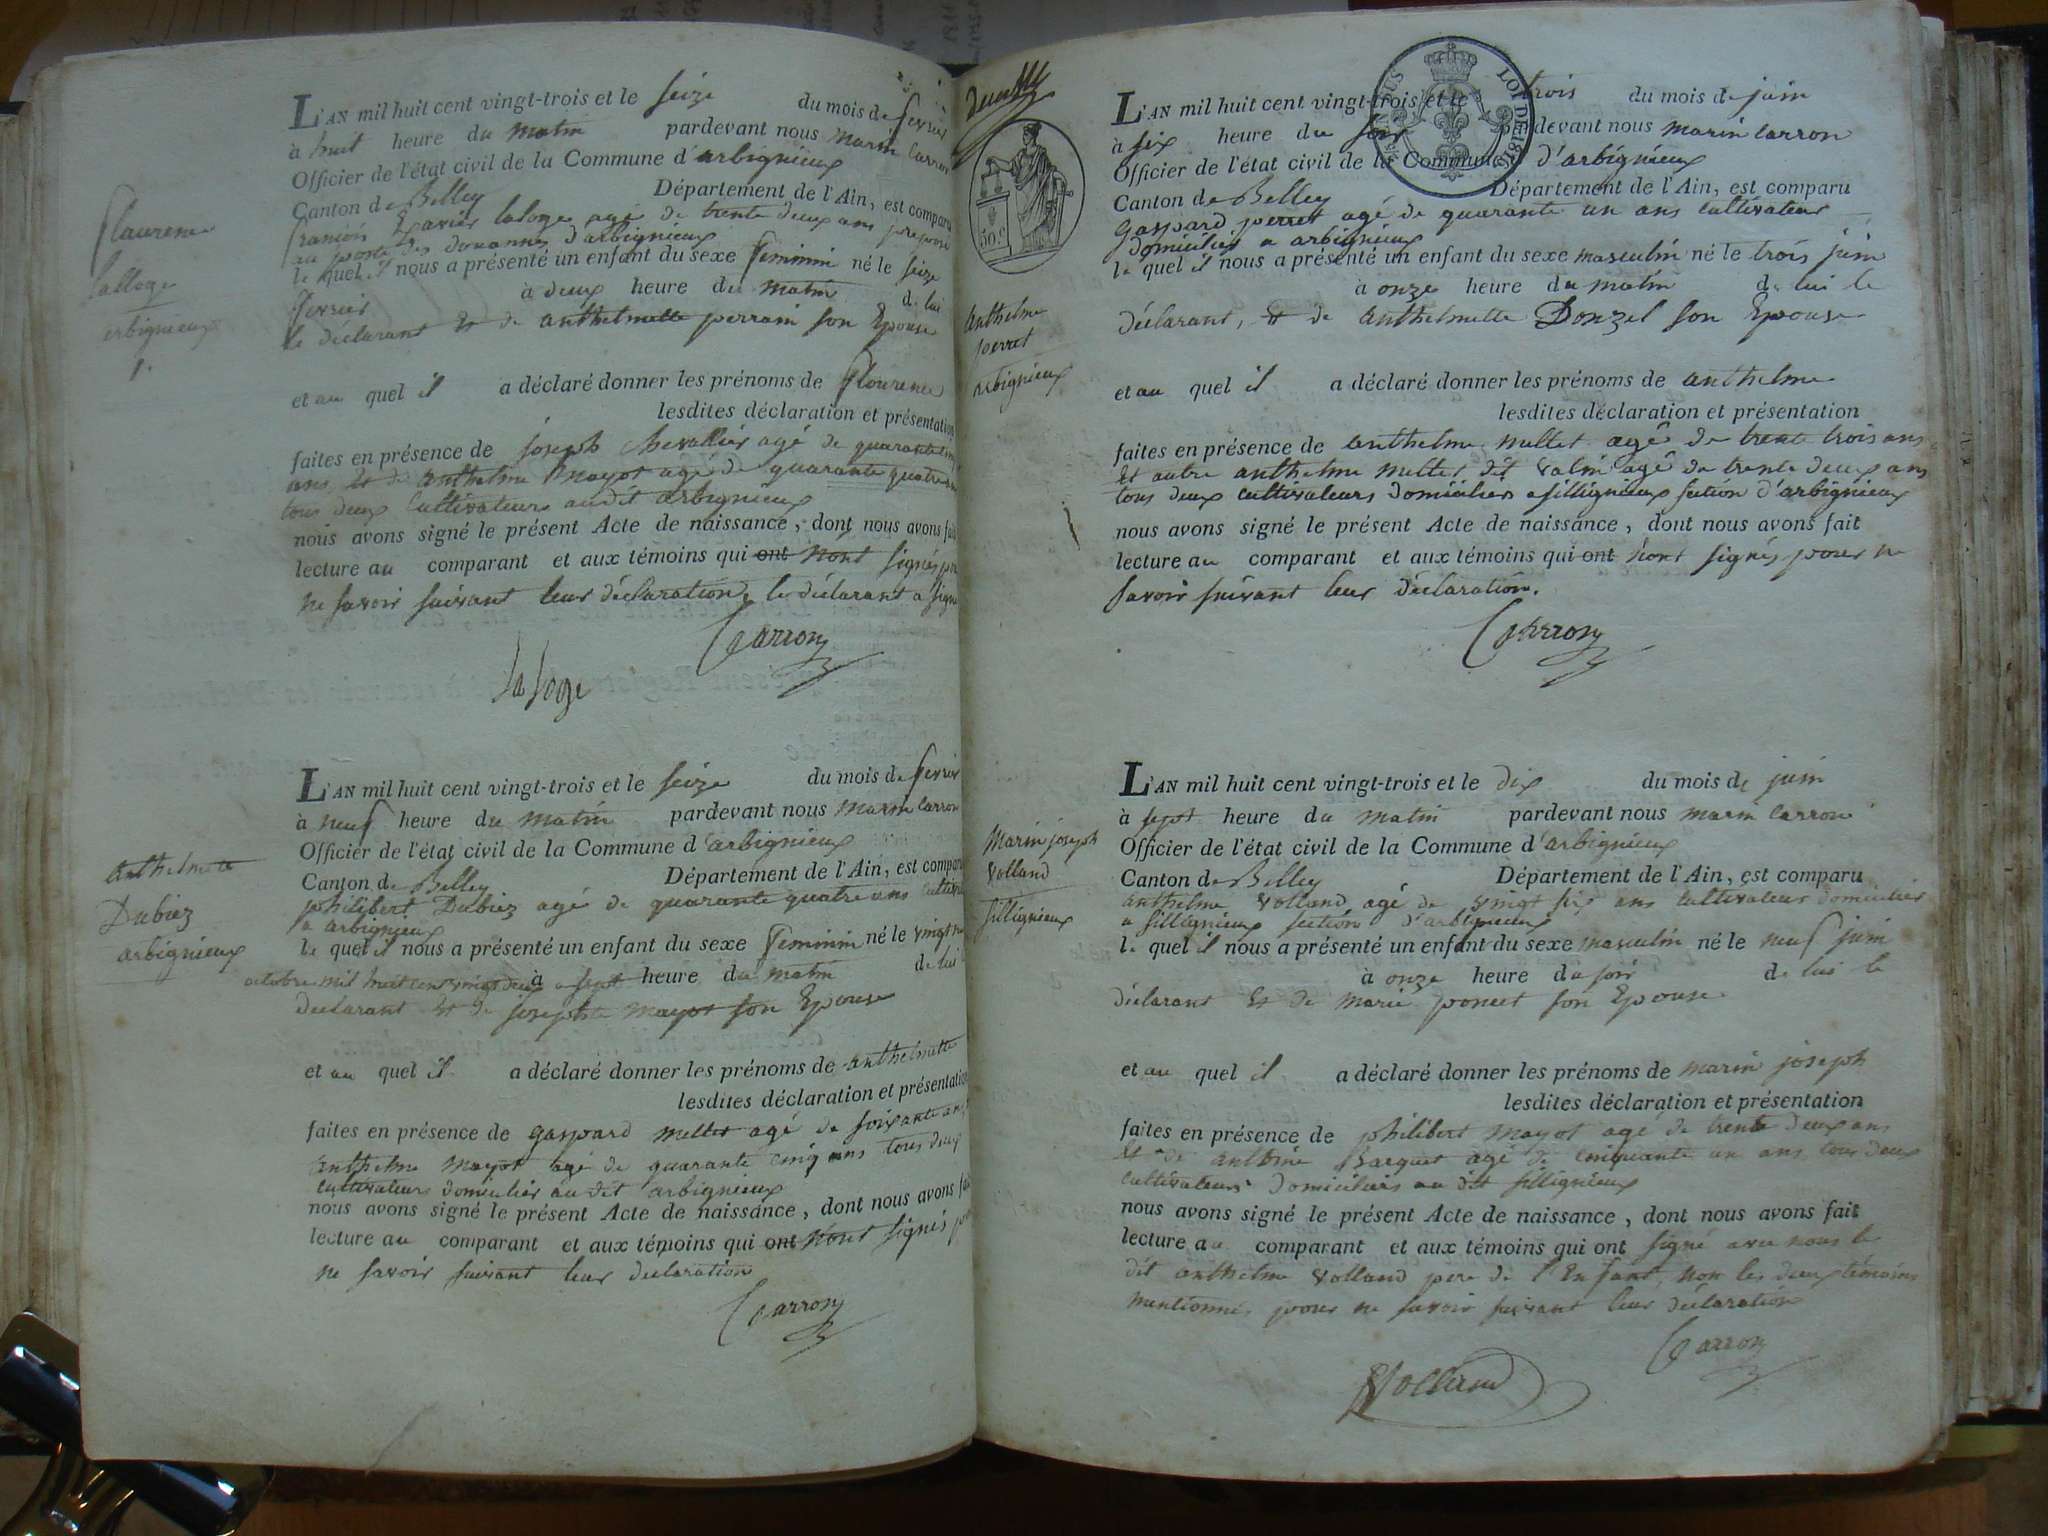 Flaurence
Lalloge
arbignieux
1.
L'AN mil huit cent vingt-trois et le seize du mois de fevrier
à huit heure du matin pardevant nous marin Carron
Officier de l'état civil de la Commune d'arbignieux
Canton de Belley Département de l'Ain, est comparu
francois Xavier laloge agé de trente deux ans preposé
au poste des douannes d'arbignieux
le quel il nous a présenté un enfant du sexe feminin né le seize
fevrier à deux heure du matin de lui
le déclarant Et de anthelmette perrain son Epouse
et au quel il a déclaré donner les prénoms de flourence
lesdites déclaration et présentation
faites en présence de joseph Chevallier agé de quarante
ans, Et de anthelme mayot agé de quarante quatre ans
tous deux Cultivateurs audit arbignieux
nous avons signé le présent Acte de naissance, dont nous avons fait
lecture au comparant et aux témoins qui ont n'ont signés pr
ne savoir suivant leur déclaration, le déclarant a signé
Carron
la loge
Anthelmette
Dubiez
arbignieux
L'AN mil huit cent vingt-trois et le seize du mois de fevrier
à neuf heure du matin pardevant nous marin Carron
Officier de l'état civil de la Commune d'arbignieux
Canton de Belley Département de l'Ain, est comparu
philibert Dubiez agé de quarante quatre ans cultiva
a arbignieux
le quel il nous a présenté un enfant du sexe feminin né le vingt
octobre mil huit cent vingt deux à sept heure du matin de lui
declarant Et de josephte mayot son Epouse
et au quel il a déclaré donner les prénoms de anthelmette
lesdites déclaration et présentation
faites en présence de gaspard mettet agé de soixante ans
anthelme mayot agé de quarante cinq ans tous deux
cultivateurs domiciliés au dit arbignieux
nous avons signé le présent Acte de naissance, dont nous avons fait
lecture au comparant et aux témoins qui ont n'ont signés p
ne savoir suivant leur declaration
Carron
50 c
LOI DE 1816
Anthelme
perret
arbignieux
L'AN mil huit cent vingt-trois et le trois du mois de juin
à six heure du soir pardevant nous marin Carron
Officier de l'état civil de la Commune d'arbignieux
Canton de Belley Département de l'Ain, est comparu
gaspard perret agé de quarante un ans cultivateur
domicilié a arbignieux
le quel il nous a présenté un enfant du sexe masculin né le trois juin
à onze heure du matin de lui le
déclarant, Et de anthelmette Donzel son Epouse
et au quel il a déclaré donner les prénoms de anthelme
lesdites déclaration et présentation
faites en présence de anthelme mettet agé de trente trois ans
Et autre anthelme mettet dit Valin agé de trente deux ans
tous deux cultivateurs domiciliés a sillignieux section d'arbignieux
nous avons signé le présent Acte de naissance, dont nous avons fait
lecture au comparant et aux témoins qui ont n'ont signés pour ne
savoir suivant leur déclaration.
Carron
Marin joseph
Volland
sillignieux
L'AN mil huit cent vingt-trois et le dix du mois de juin
à sept heure du matin pardevant nous marin Carron
Officier de l'état civil de la Commune d'arbignieux
Canton de Belley Département de l'Ain, est comparu
anthelme Volland agé de vingt six ans cultivateur domicilier
a sillignieux section d'arbignieux
le quel il nous a présenté un enfant du sexe masculin né le neuf juin
à onze heure du soir de lui le
déclarant Et de marie poncet son Epouse
et au quel il a déclaré donner les prénoms de marin joseph
lesdites déclaration et présentation
faites en présence de philibert mayot agé de trente deux ans
Et de anthoine Barquet agé de cinquante un ans tous deux
cultivateurs domiciliers au dit sillignieux
nous avons signé le présent Acte de naissance, dont nous avons fait
lecture au comparant et aux témoins qui ont signé avec nous le
dit anthelme Volland pere de l'Enfant, non les deux témoins
mentionnés pour ne savoir suivant leur déclaration
Carron
Volland